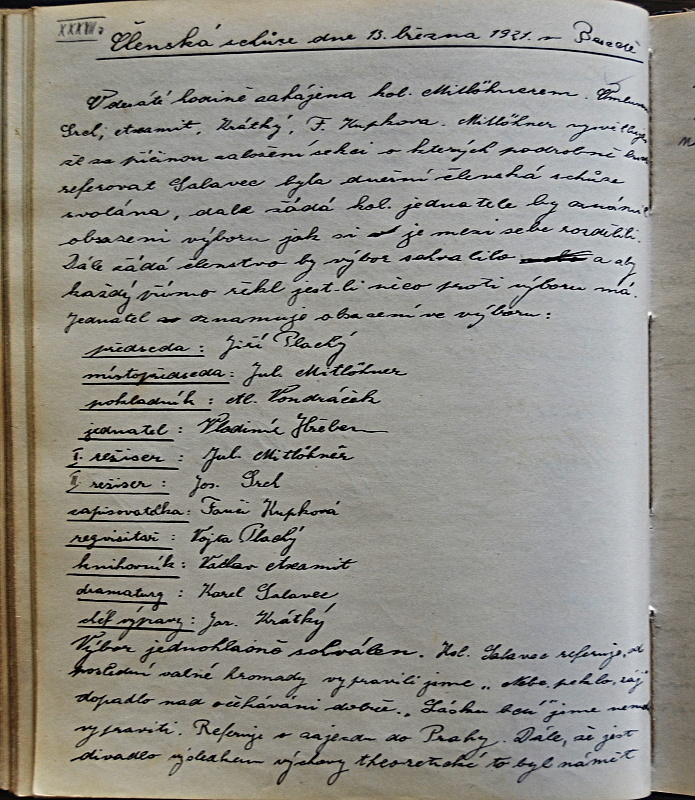 XXXVII.
Členská schůze dne 13. března 1921. v Besedě
V deváté hodině zahájena kol. Mitlöhnerem.
Srel, Axamit, Krátký, F. Kupkova. Mitlöhner vysvětluje
že za příčinou založení sekcí o kterých podrobně bude
referovat Salavec byla dnešní členská schůze
svolána, dale žádá kol. jednatele by oznámil
obsazeni výboru jak si je mezi sebe rozdělili.
Dále žádá členstvo by výbor schvalilo a aby
každý přímo řekl jest-li něco proti výboru má.
Jednatel oznamuje obsazení ve výboru:
předseda: Jiří Plachý
místopředseda: Jul. Mitlöhner
pokladník: Al. Vondráček
jednatel: Vladimír Hřeben
I. režiser: Jul. Mitlöhner
II. režiser: Jos. Srel
zapisovatelka: Fanči Kupková
regvisitář: Vojta Plachý
knihovník: Václav Axamit
dramaturg: Karel Salavec
šéf výpravy: Jar. Krátký
Výbor jednohlasně schválen. Kol. Salavec referuje, od
poslední valné hromady vypravili jsme „Nebe, peklo, ráj"
dopadlo nad očekávání dobře. „Lásku" jsme
vypraviti. Referuje o zajezdu do Prahy. Dále, že jest
divadlo výsledkem výchovy theoretické to byl námět